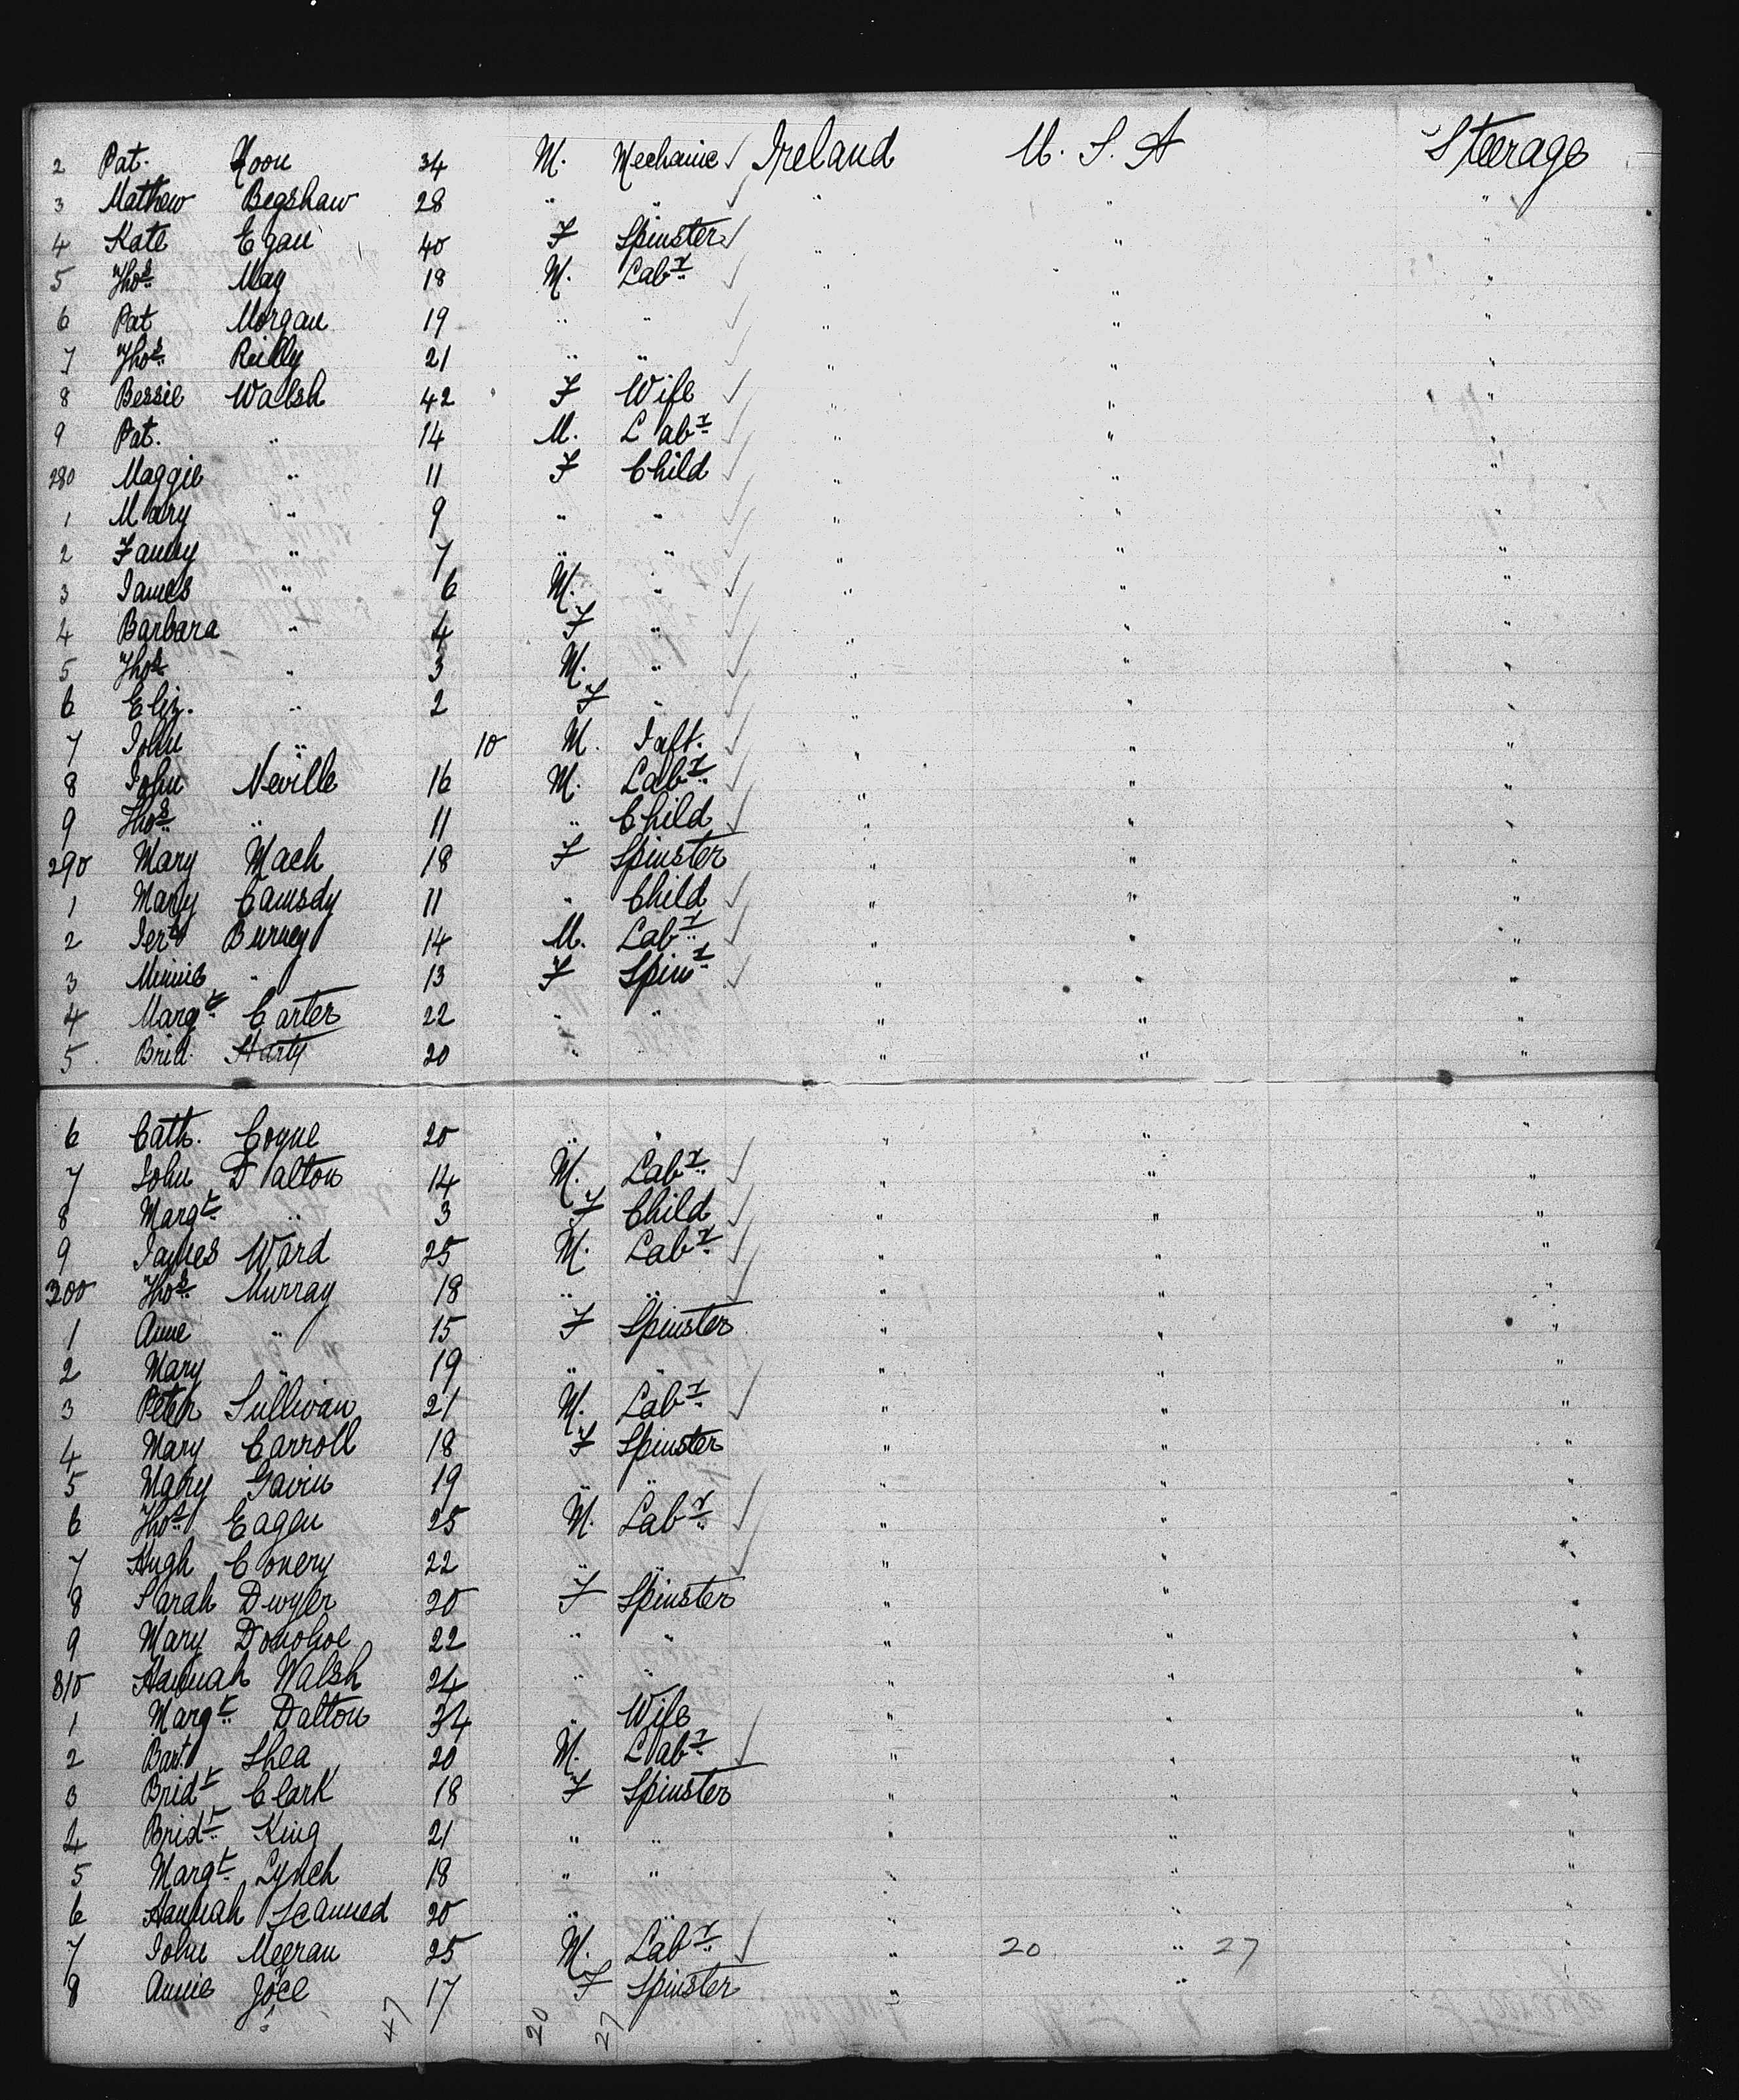 2 Pat. Noon 34 M. Mechanic ✓ Ireland U. S. A Steerage
3 Mathew Begshaw 28 " " ✓ " " "
4 Kate Egan 40 F Spinster ✓ " " "
5 Thos May 18 M. Labr ✓ " " "
6 Pat Morgan 19 " " ✓ " " "
7 Thos Reilly 21 " " ✓ " " "
8 Bessie Walsh 42 F Wife ✓ " " "
9 Pat. " 14 M. Labr ✓ " " "
280 Maggie " 11 F Child ✓ " " "
1 Mary " 9 " " ✓ " " "
2 Fanny " 7 " " ✓ " " "
3 James " 6 M. " ✓ " " "
4 Barbara " 4 F " ✓ " " "
5 Thos " 3 M. " ✓ " " "
6 Eliz. " 2 F " ✓ " " "
7 John " 10 M. Inft. ✓ " " "
8 John Neville 16 M. Labr ✓ " " "
9 Thos " 11 " Child ✓ " " "
290 Mary Mach 18 F Spinster " " "
1 Mary 11 " Child ✓ " " "
2 Burney 14 M. Labr ✓ " " "
3 Minnie " 13 F Spinr ✓ " " "
4 Margt Carter 22 " " " " "
5 Brid. Harty 20 " " " " "
6 Cath. Coyne 20 " " " " "
7 John Dalton 14 M. Labr ✓ " " "
8 Margt " 3 F Child ✓ " " "
9 James Ward 25 M. Labr ✓ " " "
300 Thos Murray 18 " " ✓ " " "
1 Anne " 15 F Spinster " " "
2 Mary " 19 " " " " "
3 Peter Sullivan 21 M. Labr ✓ " " "
4 Mary Carroll 18 F Spinster " " "
5 Mary Gavin 19 " " " " "
6 Thos Eagen 25 M. Labr ✓ " " "
7 Hugh Conery 22 " " ✓ " " "
8 Sarah Dwyer 20 F Spinster " " "
9 Mary Donohoe 22 " " " " "
310 Hannah Walsh 24 " " " " "
1 Margt Dalton 34 " Wife " " "
2 Bart. Shea 20 M. Labr ✓ " " "
3 Bridt Clark 18 F Spinster " " "
4 Bridt King 21 " " " " "
5 Margt Lynch 18 " " " " "
6 Hannah Scanned 20 " " " " "
7 John Meeran 25 M. Labr ✓ " 20 " 27 "
8 Annie Joce 17 F Spinster " "
47 20 27